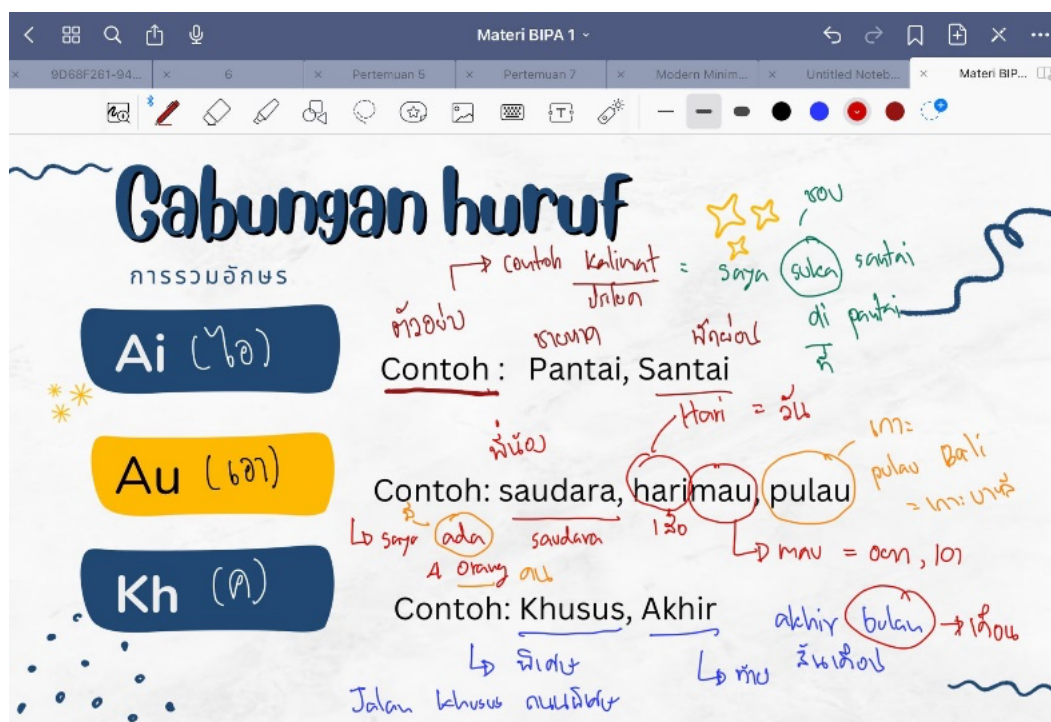 Materi BIPA 1
9D68F261-94...
6
Pertemuan 5
Pertemuan 7
Modern Minim...
Untitled Noteb...
Materi BIP...
Gabungan huruf
การรวมอักษร
contoh kalimat = saya suka santai
ประโยค
ชอบ
di pantai
ที่
Ai (ไอ)
ตัวอย่าง
ชายหาด
พักผ่อน
Contoh : Pantai, Santai
Hari = วัน
พี่น้อง
เกาะ
pulau Bali
= เกาะบาหลี
Au (เอา)
Contoh: saudara, harimau, pulau
มี
เสือ
saya ada 4 orang saudara
คน
mau = อยาก, เอา
Kh (ค)
Contoh: Khusus, Akhir
akhir bulan → เดือน
สิ้นเดือน
พิเศษ
ท้าย
Jalan khusus ถนนพิเศษ